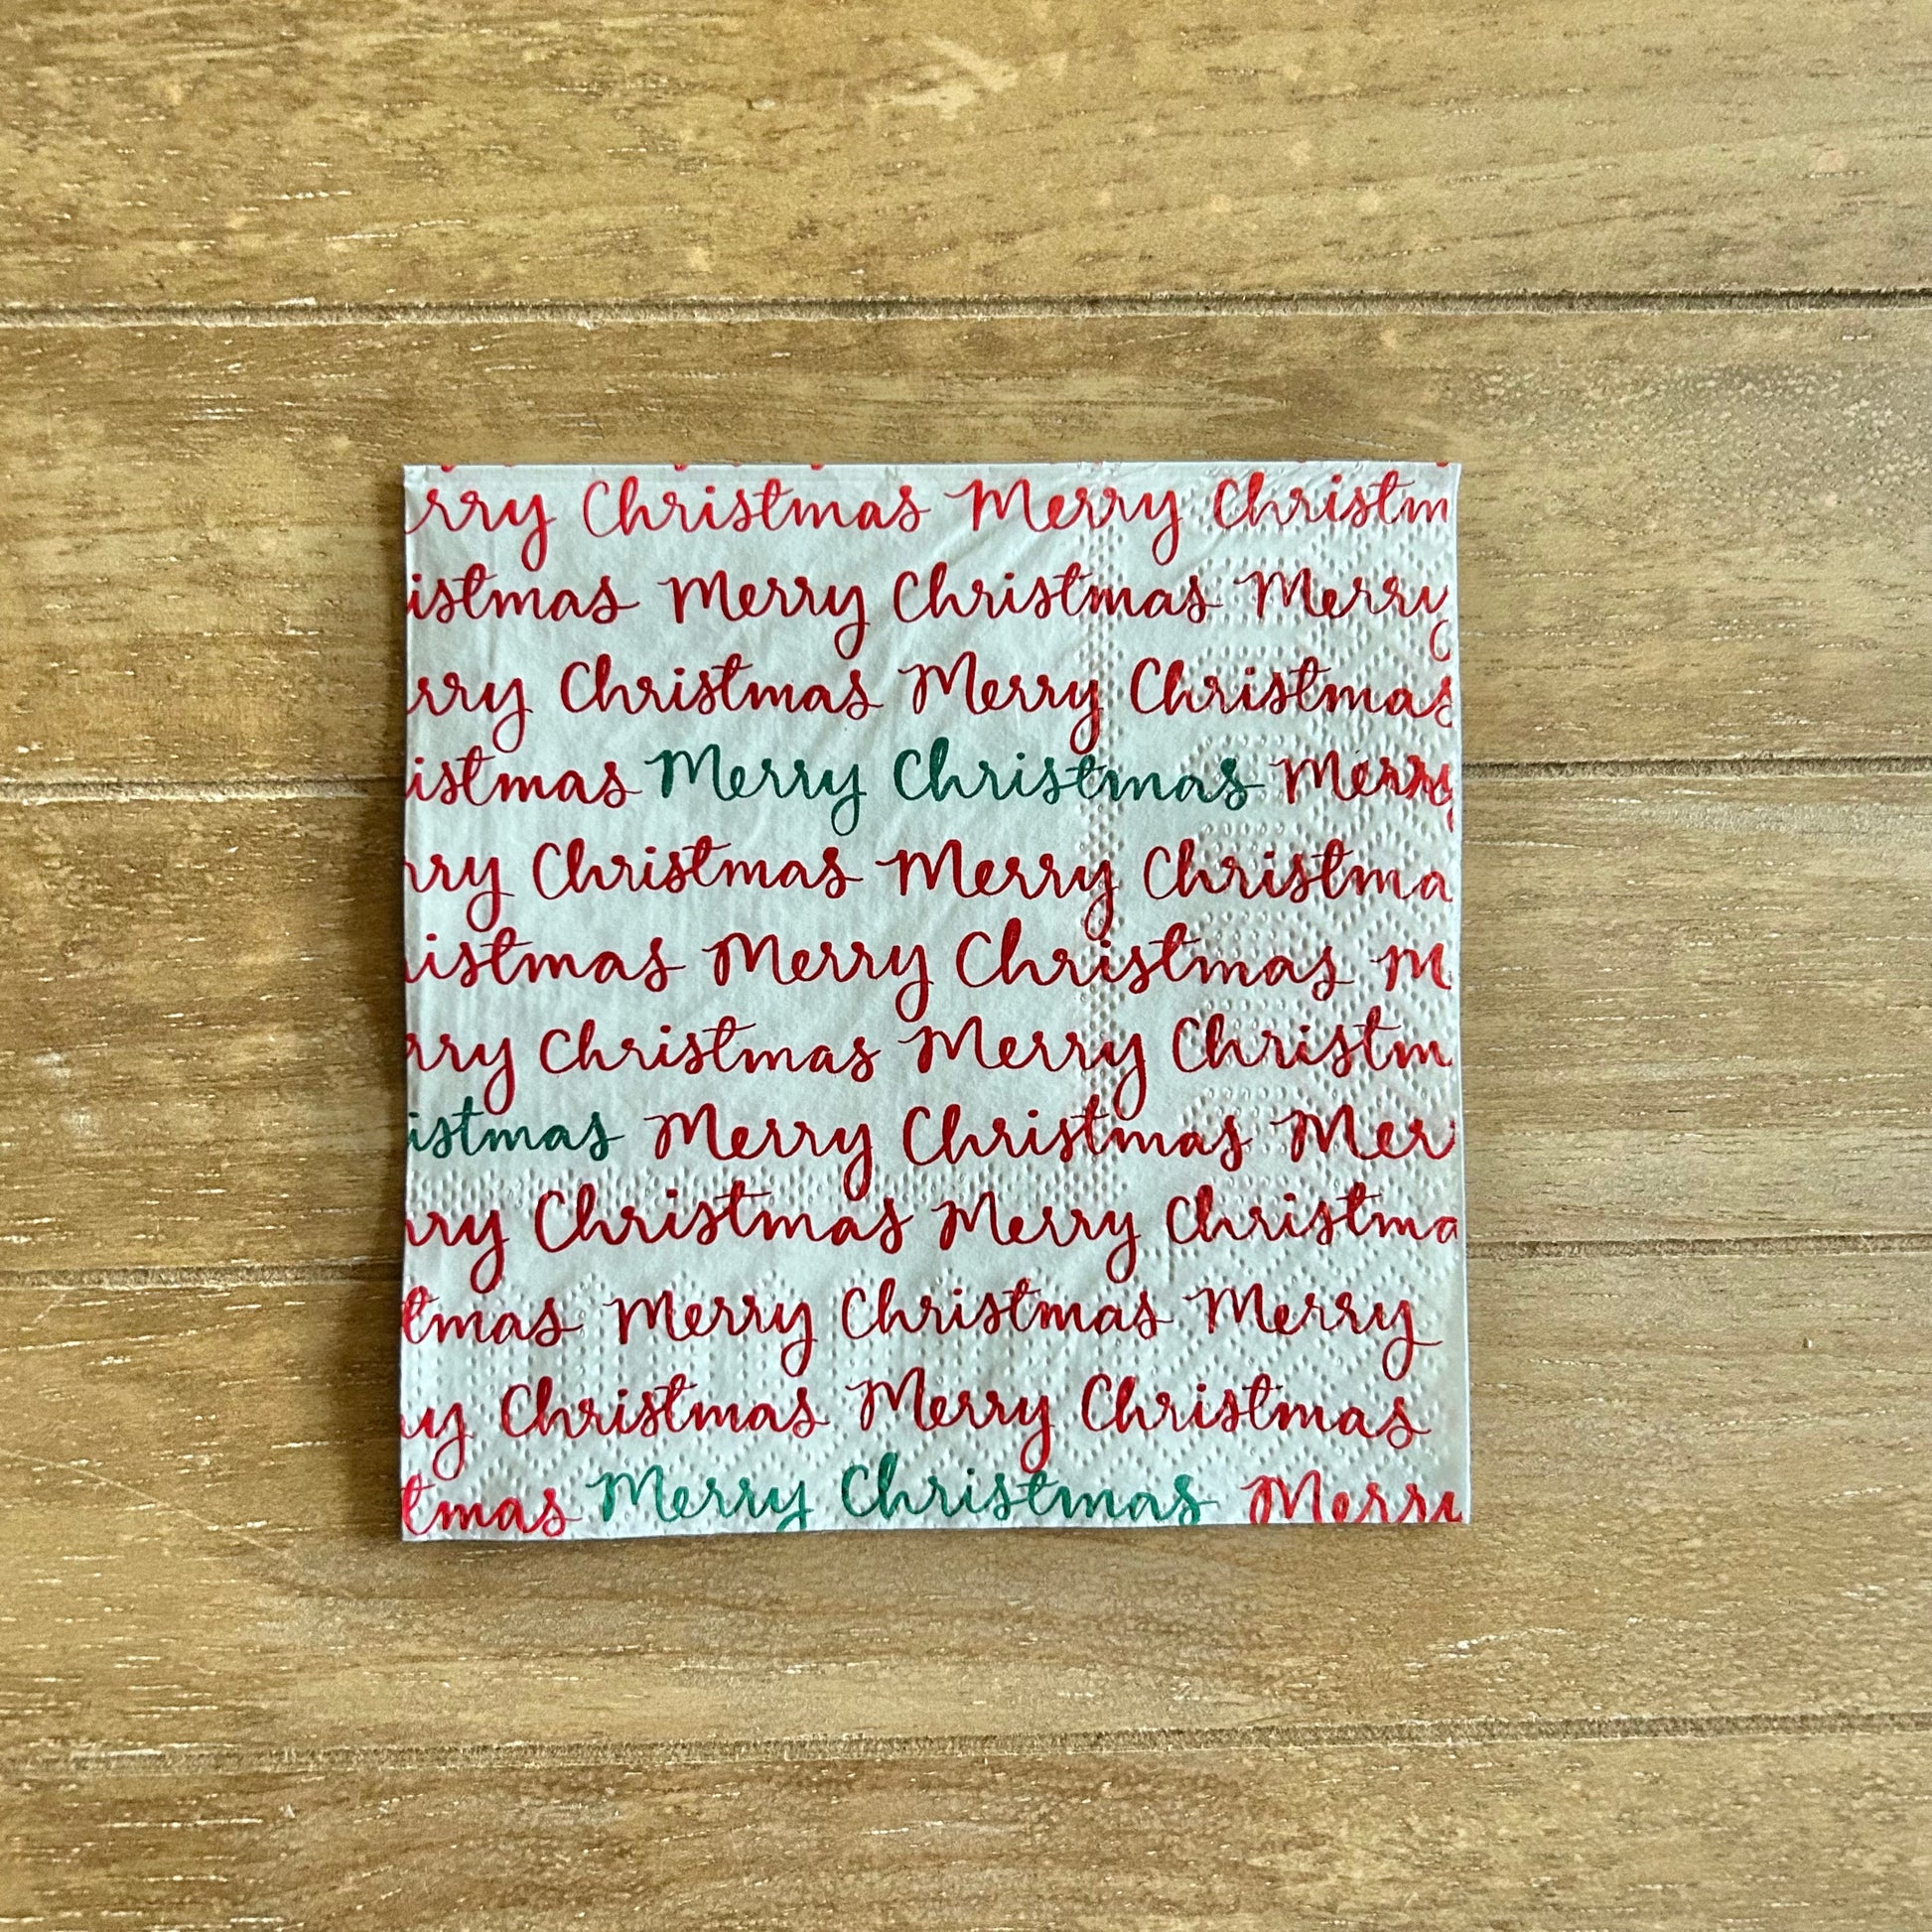 rry Christmas Merry Christm
istmas Merry Christmas Merry
rry Christmas Merry Christmas
istmas Merry Christmas Merry
rry Christmas Merry Christma
istmas Merry Christmas M
rry Christmas Merry Christm
istmas Merry Christmas Mer
rry Christmas Merry Christma
tmas Merry Christmas Merry
y Christmas Merry Christmas
tmas Merry Christmas Merry